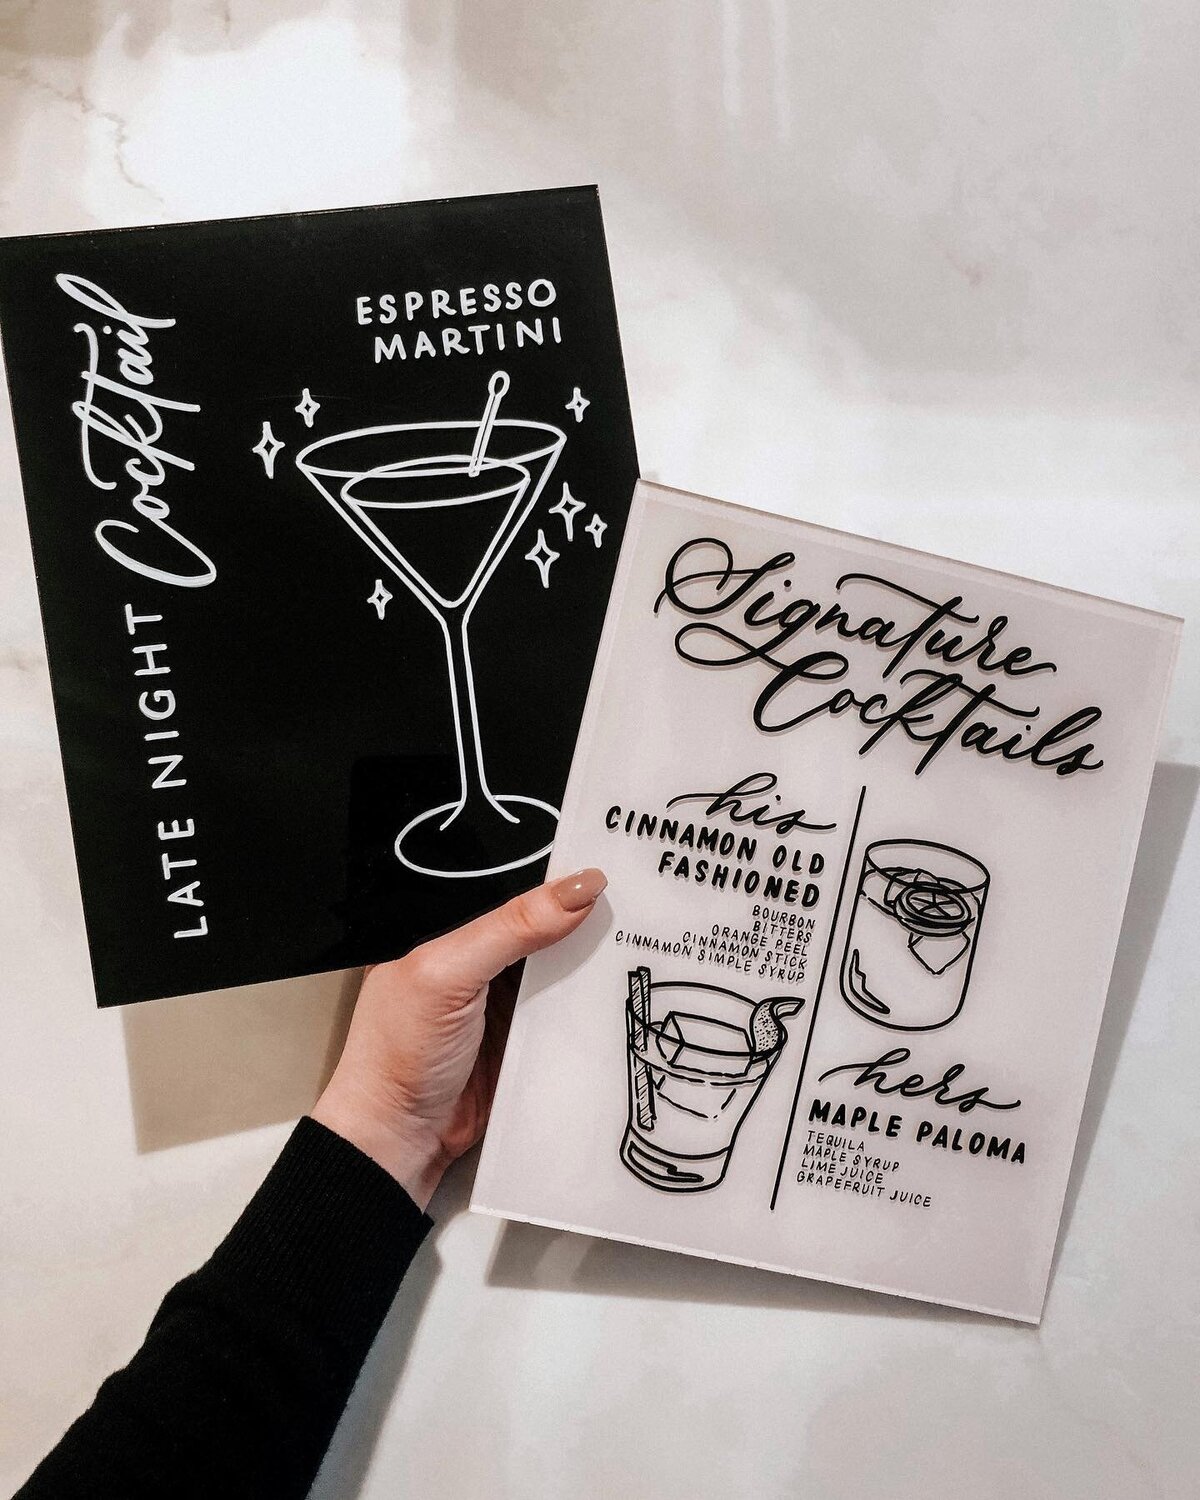 LATE NIGHT Cocktail
ESPRESSO
MARTINI
Signature
Cocktails
his
CINNAMON OLD
FASHIONED
BOURBON
BITTERS
ORANGE PEEL
CINNAMON STICK
CINNAMON SIMPLE SYRUP
hers
MAPLE PALOMA
TEQUILA
MAPLE SYRUP
LIME JUICE
GRAPEFRUIT JUICE